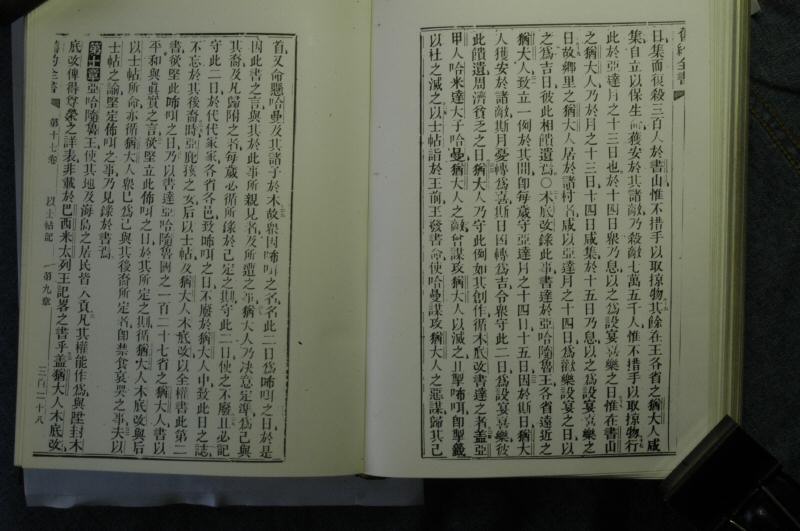 舊約全書
日集而復殺三百人於書山惟不措手以取掠物其餘在王各省之猶大人咸
集自立以保生而獲安於其諸敵乃殺敵七萬五千人惟不措手以取掠物行
此於亞達月之十三日也於十四日衆乃息以之為設宴喜樂之日惟在書山
之猶大人乃於月之十三日十四日咸集於十五日乃息以之為設宴喜樂之
日故鄉里之猶大人居於諸村者咸以亞達月之十四日為歡樂設宴之日以
之為吉日彼此相饋遺焉○木底改錄此事書達於亞哈隨魯王各省遠近之
猶大人致立一例於其間即每歲守亞達月之十四日十五日因於斯日猶大
人獲安於諸敵斯月憂轉為喜斯日凶轉為吉令衆守此二日為設宴喜樂彼
此饋遺周濟貧乏之日猶大人乃守此例如其創作循木底改書達之者蓋亞
甲人哈米達大子哈曼猶大人之敵曾謀攻猶大人以滅之且掣咘咡即掣籤
以杜之滅之以士帖詣於王前王發書命使哈曼謀攻猶大人之惡謀歸其己
首又命懸哈曼及其諸子於木故衆因咘咡之名名此二日為咘咡之日於是
因此書之言與其於此事所親見者及所遭之事猶大人乃决意定準為己與
其裔及凡歸附之者每歲必循所錄於己定之期守此二日使之不廢且必記
守此二日於代代家家各省各邑致咘咡之日不廢於猶大人中致此日之誌
不忘於其後裔時亞庇孩之女后以士帖及猶大人木底改以全權書此第二
書欲堅此咘咡之日乃以書達亞哈隨魯國之一百二十七省之猶大人書以
平和與眞實之言欲堅立此咘咡之日於其所定之期循猶大人木底改與后
以士帖所命亦循猶大人衆已為己與其後裔所定者即禁食哀哭之事夫以
士帖之諭堅定咘咡之事乃見錄於書焉
第十章亞哈隨魯王使其地及海島之居民皆入貢凡其權能作為與陞封木
底改俾得尊榮之詳表非載於巴西米太列王記畧之書乎蓋猶大人木底改
舊約全書 第十七卷 以士帖記 第九章 三百二十八